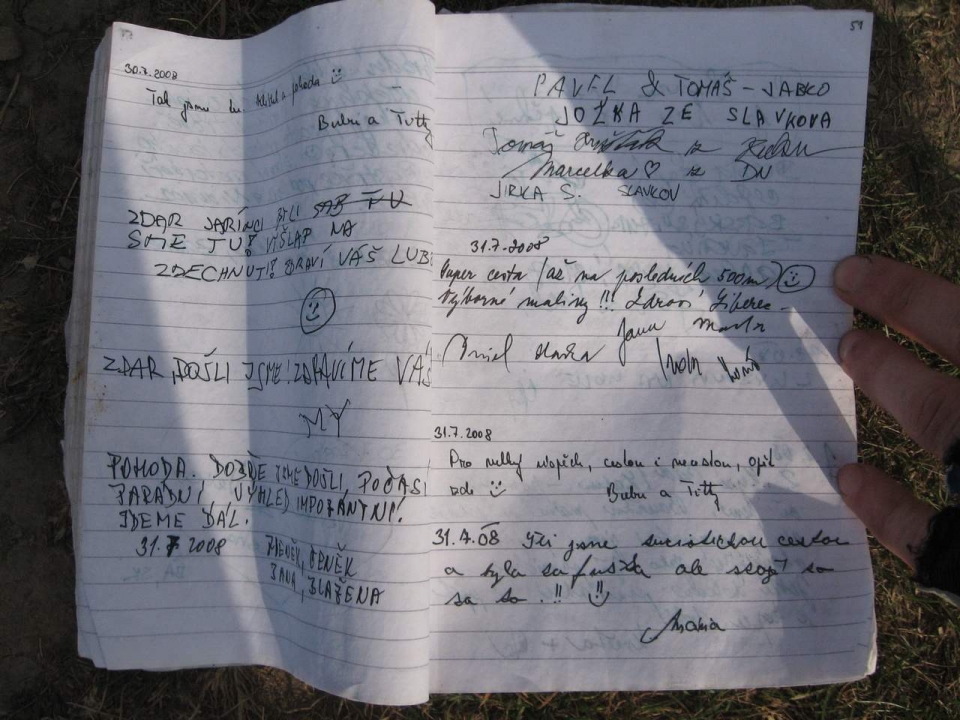 30.7.2008
Tak jsme tu. Klid a pohoda
Bubu a Tutty
ZDAR JARÍNCI BYLI
SME TU! VÍŠLAP NA
ZDECHNUTÍ! ZDRAVÍ VÁŠ LUB
ZDAR, DOŠLI JSME! ZDRAVÍME VÁS
MY
POHODA. DOBŘE JSME DOŠLI, POČASÍ
PARÁDNÍ, VÝHLED IMPOZANTNÍ!
JDEME DÁL.
31.7 2008 ZDENĚK, ZDENĚK
JANA, BLAŽENA
51
PAVEL & TOMÁŠ - JABKO
JOŽKA ZE SLAVKOVA
Tomáš iz
Marcelka iz DN
JIRKA S. SLAVKOV
31.7.2008
Super cesta (až na posledních 500m)
Výborné maliny!!! Zdraví Liberec
Jana
31.7.2008
Pro velký úspěch, cestou i necestou, opět
zde Bubu a Tutty
31.7.08 Šli jsme turistickou cestou
a byla to fuška ale stojí to
za to.!!